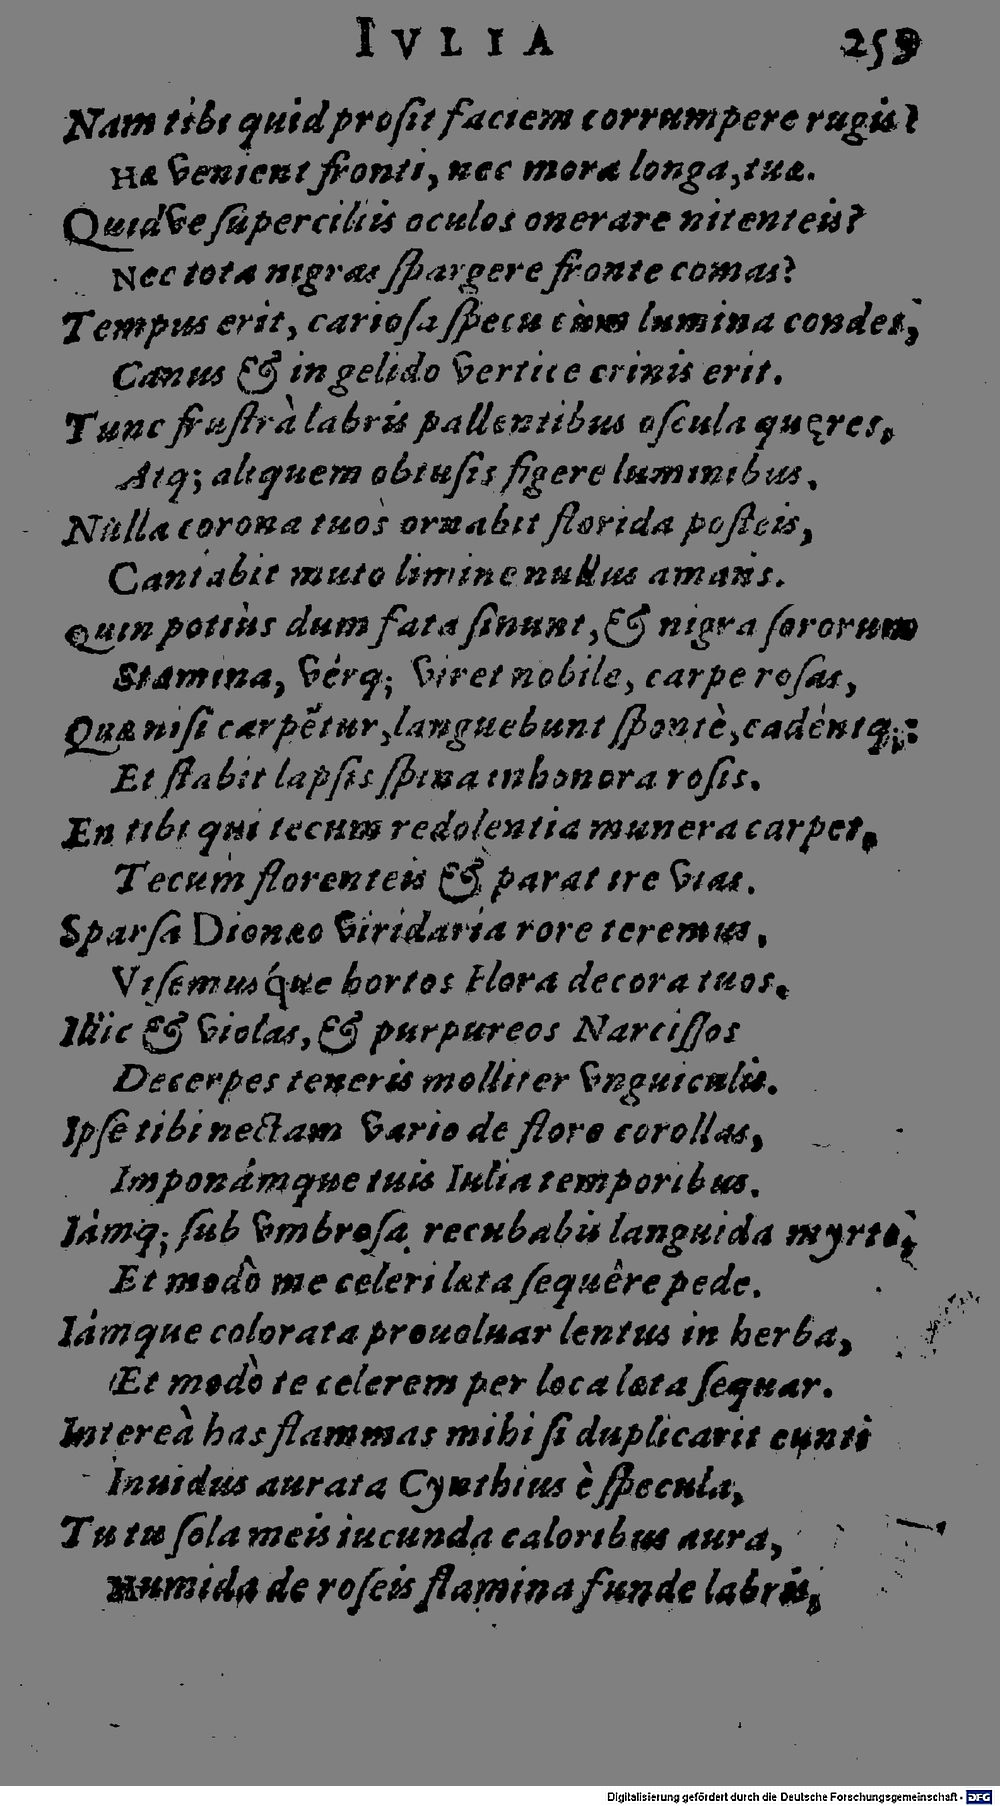 IVLIA 259
Nam tibi quid prosit faciem corrumpere rugis?
Hæ venient fronti, nec mora longa, tuæ.
Quidve superciliis oculos onerare nitenteis?
Nec tota nigras spargere fronte comas?
Tempus erit, cariosa specu cùm lumina condes,
Canus & in gelido vertice crinis erit.
Tunc frustrà labris pallentibus oscula quęres,
Atq; aliquem obtusis figere luminibus.
Nulla corona tuos ornabit florida posteis,
Cantabit muto limine nullus amans.
Quin potiùs dum fata sinunt, & nigra sororum
Stamina, vérq; viret nobile, carpe rosas,
Quæ nisi carpẽtur, languebunt spontè, cadéntq;:
Et stabit lapsis spina inhonora rosis.
En tibi qui tecum redolentia munera carpet,
Tecum florenteis & parat ire vias.
Sparsa Dionæo viridaria rore teremus,
Visemusq́ue hortos Flora decora tuos.
Illic & violas, & purpureos Narcissos
Decerpes teneris molliter vnguiculis.
Ipse tibi nectam vario de flore corollas,
Imponámque tuis Iulia temporibus.
Iámq; sub vmbrosa recubabis languida myrto,
Et modò me celeri læta sequêre pede.
Iámque colorata prouoluar lentus in herba,
Et modò te celerem per loca læta sequar.
Intereà has flammas mihi si duplicarit eunti
Inuidus aurata Cynthius è specula,
Tu tu sola meis iucunda caloribus aura,
Humida de roseis flamina funde labris,
Digitalisierung gefördert durch die Deutsche Forschungsgemeinschaft - DFG